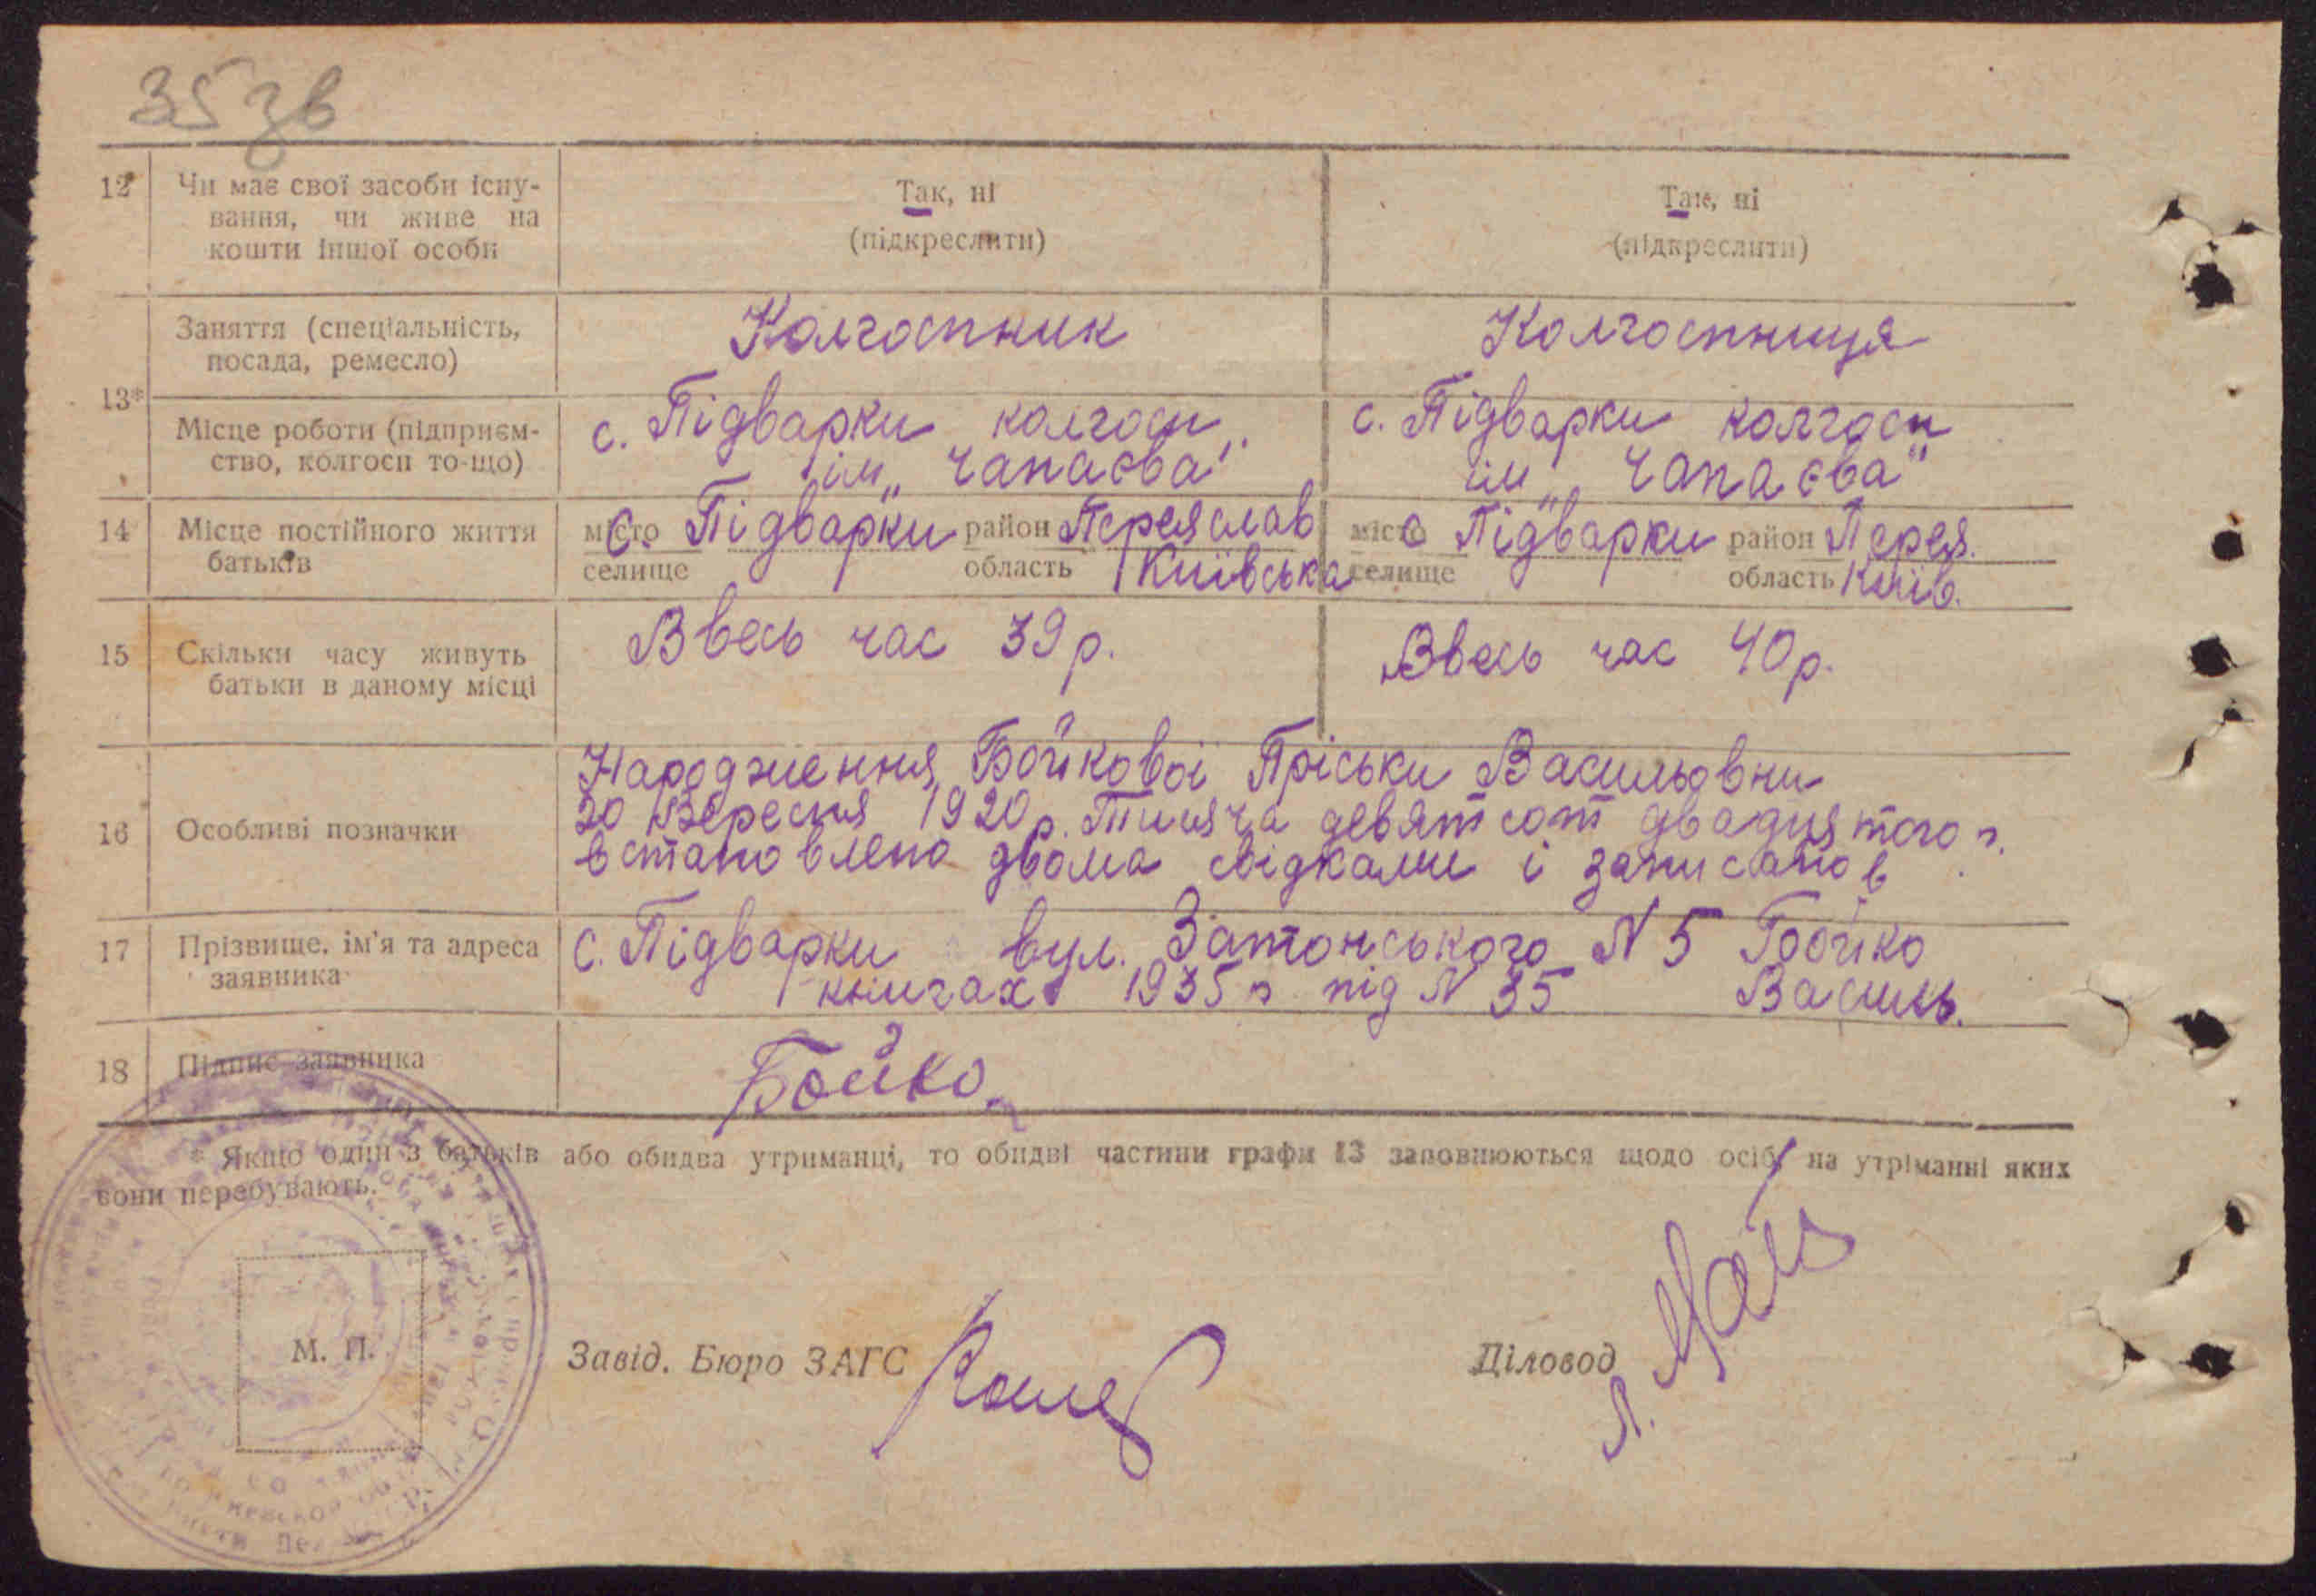 35 зв
12 Чи має свої засоби існу- Так, ні Так, ні
вання, чи живе на (підкреслити) (підкреслити)
кошти іншої особи
Заняття (спеціальність, Колгоспник Колгоспниця
посада, ремесло)
13*
Місце роботи (підприєм- с. Підварки колгосп с. Підварки колгосп
ство, колгосп то-що) ім „Чапаєва" ім „Чапаєва"
14 Місце постійного життя місто с. Підварки район Переяслав місто с Підварки район Перея.
батьків селище область Київська селище область Київ.
15 Скільки часу живуть Ввесь час 39 р. Ввесь час 40 р.
батьки в даному місці
Народження Бойкової Пріськи Васильовни
16 Особливі позначки 20 Вересня 1920 р. Тисяча девятсот двадцятого р.
встановлено двома свідками і записано в
17 Прізвище, ім'я та адреса с. Підварки вул. Затонського N 5 Бойко
заявника книгах 1935 р під N 35 Василь.
18 Підпис заявника Бойко
* Якщо один з батьків або обидва утриманці, то обидві частини графи 13 заповнюються щодо осіб, на утріманні яких
вони перебувають.
М. П.
Завід. Бюро ЗАГС Діловод